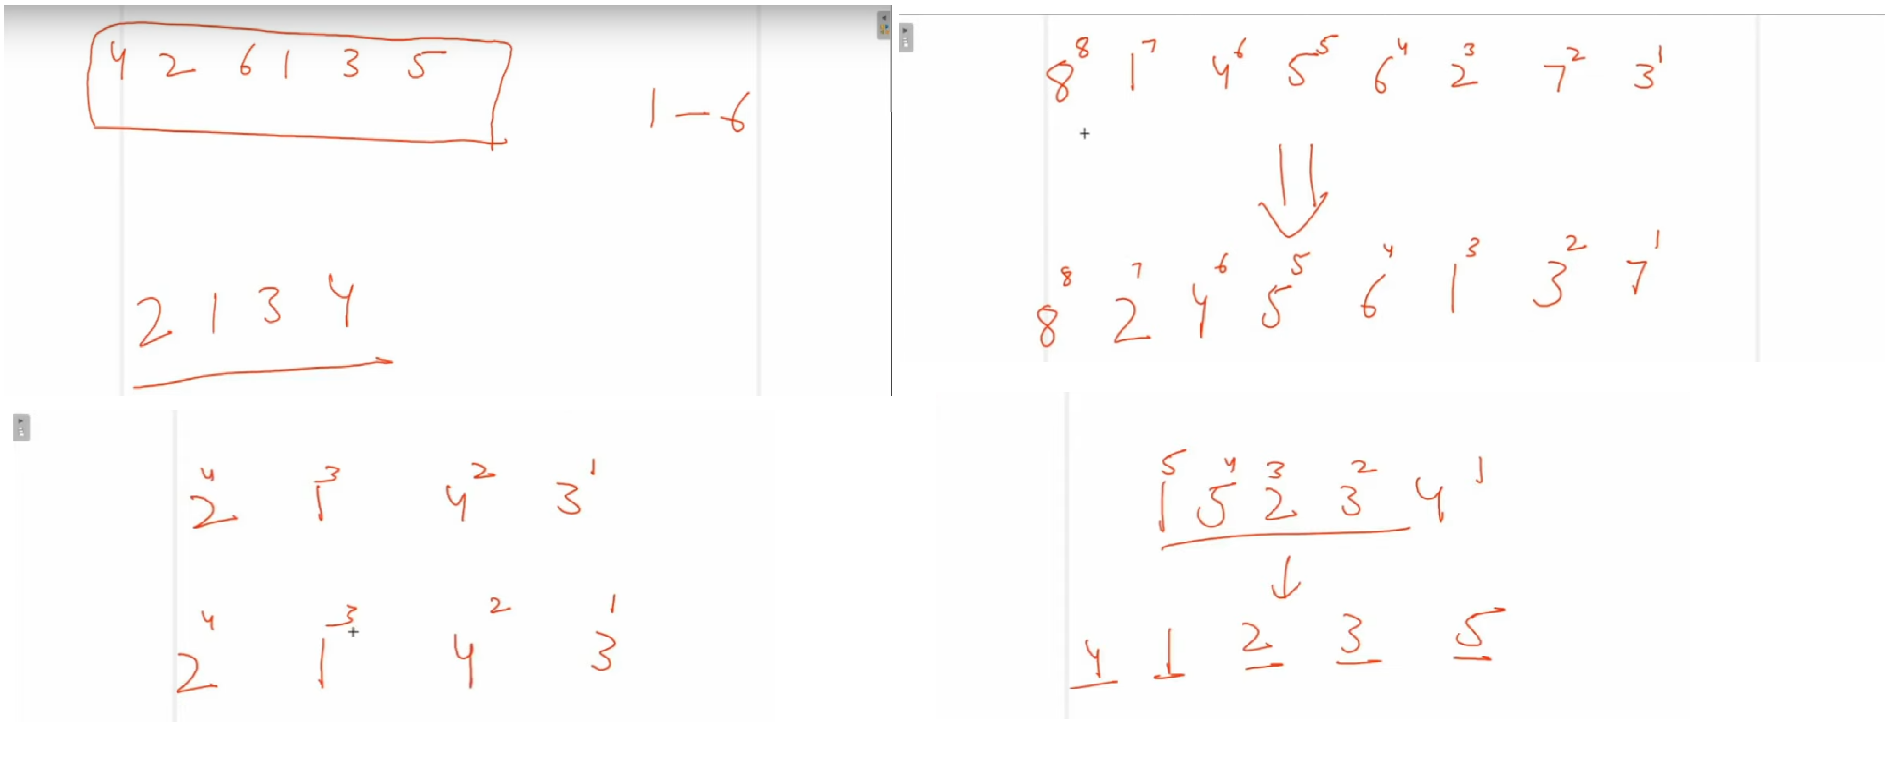 4 2 6 1 3 5
1 – 6
2 1 3 4
8⁸ 1⁷ 4⁶ 5⁵ 6⁴ 2³ 7² 3¹
8⁸ 2⁷ 4⁶ 5⁵ 6⁴ 1³ 3² 7¹
2⁴ 1³ 4² 3¹
2⁴ 1³ 4² 3¹
1⁵ 5⁴ 2³ 3² 4¹
4 1 2 3 5